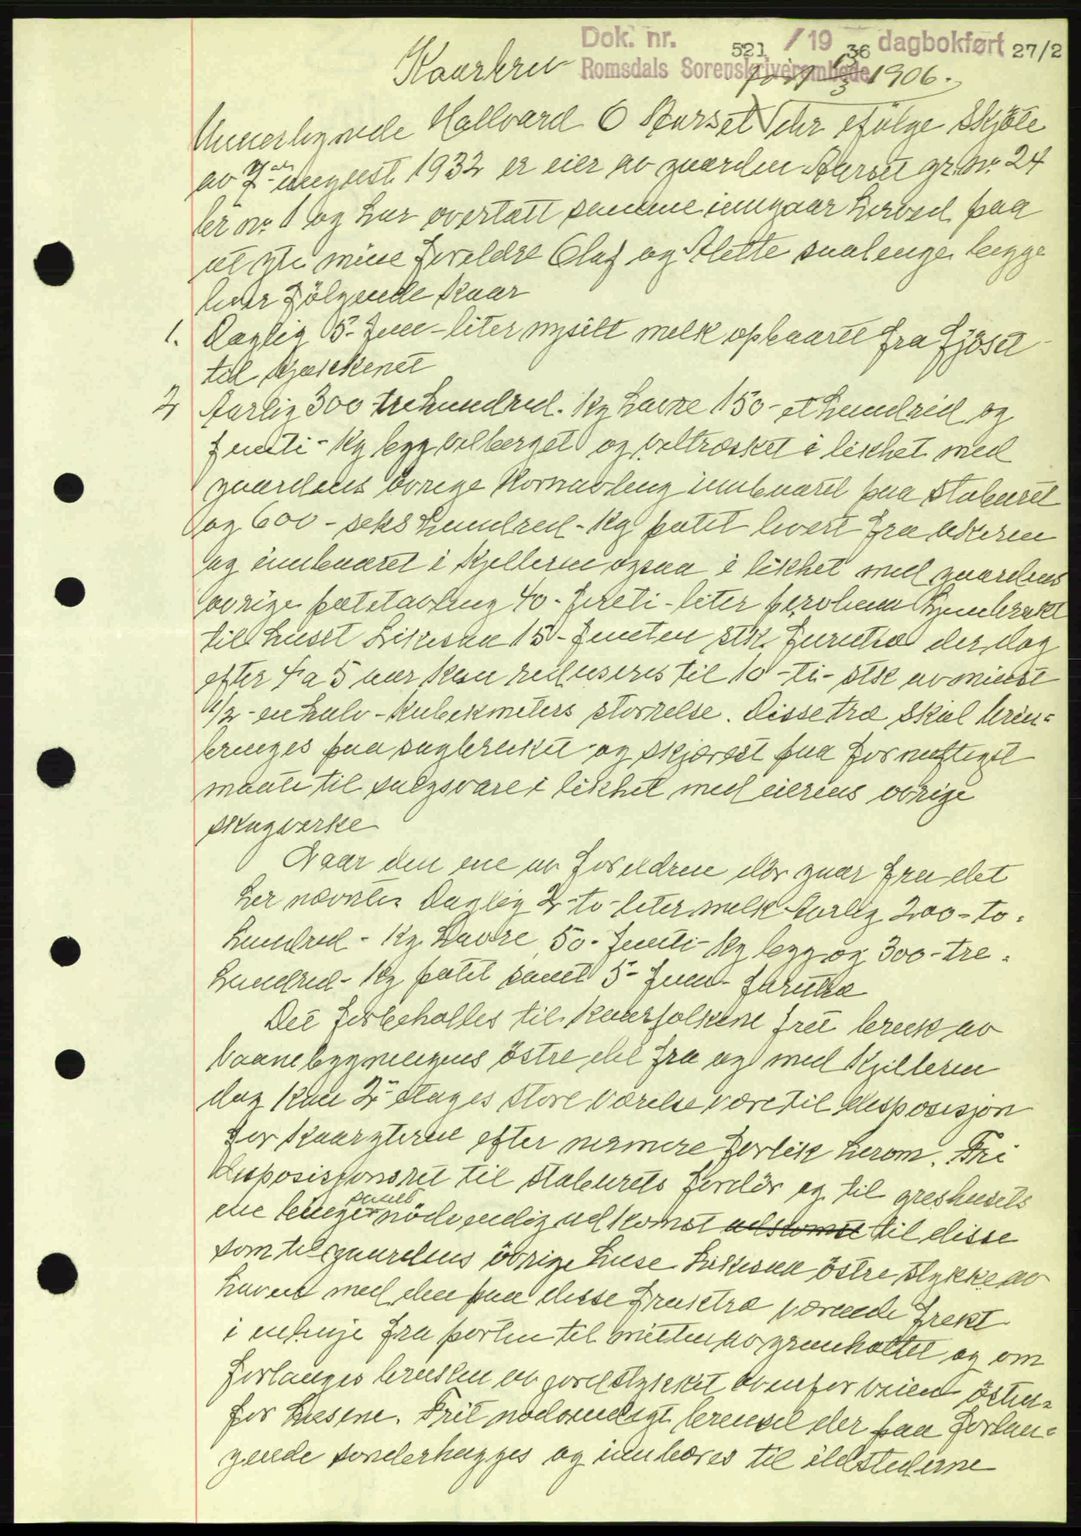 Dok. nr. 521 / 19 36 dagbokført 27/2
Romsdals Sorenskriverembede
Kaarbrev
født 13/3 1906.
Undertegnede Hallvard O Aarset der ifølge Skjöte
av 7 august 1932 er eier av gaarden Aarset gr. nr. 24
br nr. 1 og har overtatt samme inngaar herved paa
at yte mine foreldre Olaf og Alette saalenge begge
lever fölgende Kaar
1. Daglig 5- fem- liter nysilt melk opbaaret fra fjöset
til kjøkkenet
2 Aarlig 300 trehundred. Kg havre 150- ethundred og
femti- Kg bygg velberget og veltræsket i likhet med
gaardens övrige Kornavling innbaaret paa staburet
og 600- sekshundred- Kg potet levert fra akeren
og innbaaret i Kjelleren ogsaa i likhet med gaardens
övrige potetavling 40- firti- liter hjembrakt
til huset Likesaa 15- femten stk. furutræ der dog
efter 4 a 5 aar kan reduseres til 10 -ti- stk av minst
1/2 -en halv- Kubikmeters störrelse. Disse træ skal frem=
bringes paa sagbruket og skjæres paa fornuftigst
maate til salgsvare i likhet med eierens övrige
skogvirke
Naar den ene av foreldrene dör gaar fra det
her nevnte: Daglig 2- to- liter melk Aarlig 200- to-
hundred- Kg havre, 50- femti- Kg bygg og 300- tre-
hundred- Kg potet samt 5- fem- furutræ
Det forbeholdes til kaarfolkene fri bruk av
vaanebygningens östre del fra og med Kjelleren
dog kan 2- etages store værelse være til disposisjon
for kaaryteren efter nærmere forlik herom. Fri
disposisjonsret til staburets fordör og til grishusets
ene binge samt nödvendig adkomst adkomst til disse
som til gaardens övrige huse Likesaa östre stykke av
haven med den paa disse fruktræ værende frukt
i enlinje fra porten til midten av og om
forlanges bruken av jordstykket ovenfor veien östen=
for husene. Frit nödvendigt brensel der paa forlan=
gende sönderhugges og innbæres til ildstederne